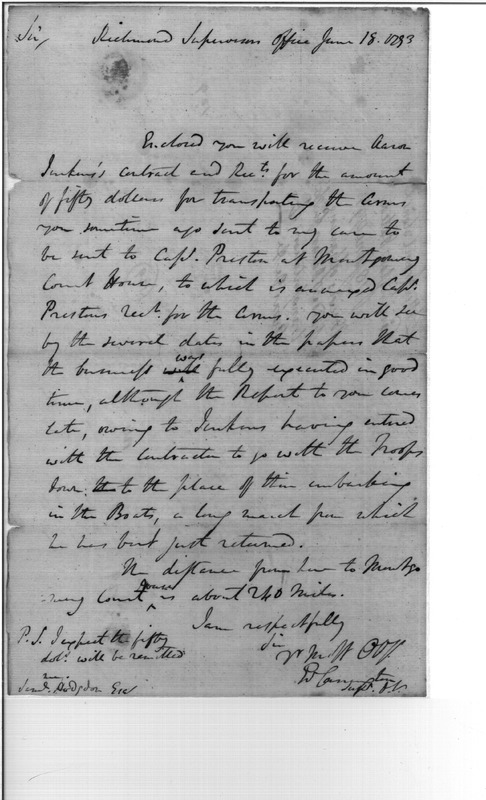 Sir, Richmond Supervisors Office June 18. 1793
Enclosed you will receive Aaron
Jenkins's contract and Rects. for the amount
of fifty dollars for transporting the Arms
you sometime ago sent to my care to
be sent to Capt. Preston at Montgomery
Court House, to which is annexed Capt.
Prestons rect. for the Arms. you will see
by the several dates in the papers that
the business was fully executed in good
time, although the Report to you comes
late, owing to Jenkins having entered
with the Contractor to go with the Troops
down to the place of their embarking
in the Boats, a long march from which
he has but just returned.
The distance from here to Montgo
mery Court House is about 240 Miles.
I am respectfully
Sir
yr Mo Obt
P.S. I expect the fifty
dols. will be remitted
me.
Saml. Hodgdon Esr
E Carrington
Supr.